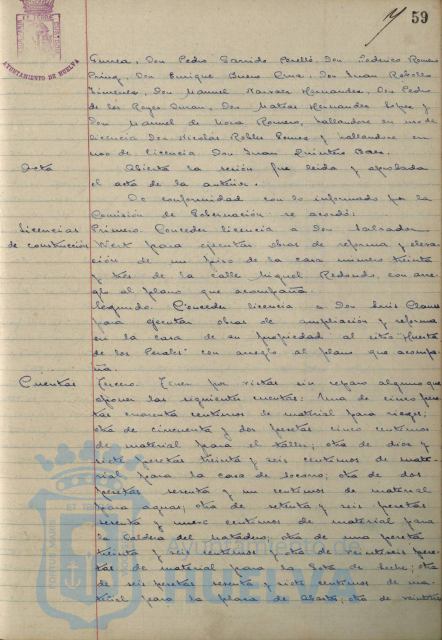 59
AYUNTAMIENTO DE HUELVA
Gurrea, Don Pedro Garrido Perelló, Don Federico Romero
Don Enrique Bueno Cruz, Don Juan Rebollo
Jimenez, Don Manuel Narvaez Hernandez, Don Pedro
de los Reyes Duran, Don Matias Hernandez Lopez y
Don Manuel de Mora Romero, hallandose en uso de
licencia Don Nicolás Robles Gomez y hallandose en
uso de licencia Don Juan Quintero Baez.
Acta
Abierta la sesión fue leida y aprobada
el acta de la anterior.
De conformidad con lo informado por la
Comisión de Gobernación se acordó:
Licencias
de construcción
Primero. Conceder licencia a Don Salvador
para ejecutar obras de reforma y eleva-
ción de un piso de la casa número treinta
y tres de la calle Miguel Redondo, con arre-
glo al plano que acompaña.
Segundo. Conceder licencia a Don Luis
para ejecutar obras de ampliación y reforma
en la casa de su propiedad al sitio "Huerta
de los Perales" con arreglo al plano que acompa-
ña.
Cuentas
Tercero. Tener por vistas sin reparo alguno que
oponer las siguientes cuentas: Una de cinco pe-
setas cuarenta centimos de material para riegos;
otra de cincuenta y dos pesetas cinco centimos
de material para el taller; otra de diez y
siete pesetas treinta y seis centimos de mate-
rial para la casa de socorro; otra de dos
pesetas sesenta y un centimos de material
para aguas; otra de setenta y seis pesetas
sesenta y nueve centimos de material para
la caldera del matadero; otra de una peseta
treinta y seis centimos y otra de veintiseis pese-
tas de material para la Gota de leche; otra
de seis pesetas sesenta y siete centimos de ma-
terial para la plaza de Abastos; otra de